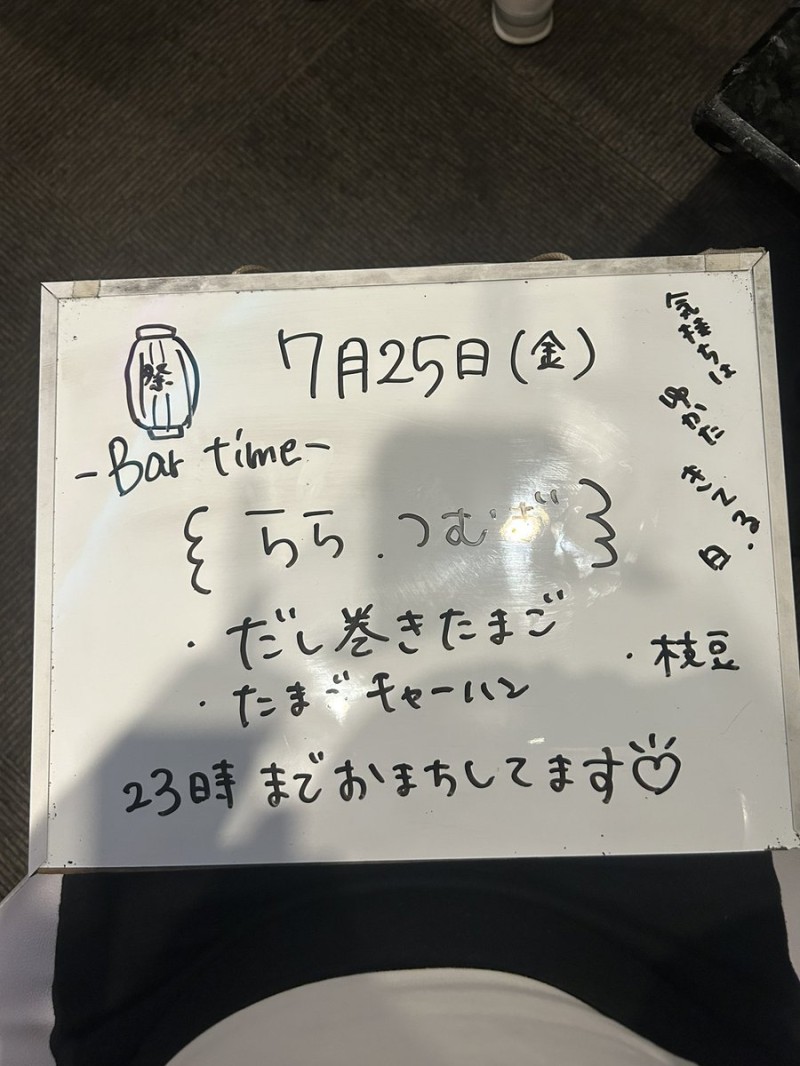 祭
7月25日(金)
-Bar time-
らら.つむぎ
・だし巻きたまご
・枝豆
・たまごチャーハン
23時までおまちしてます♡
気持ちは
ゆかた
きてる.
日